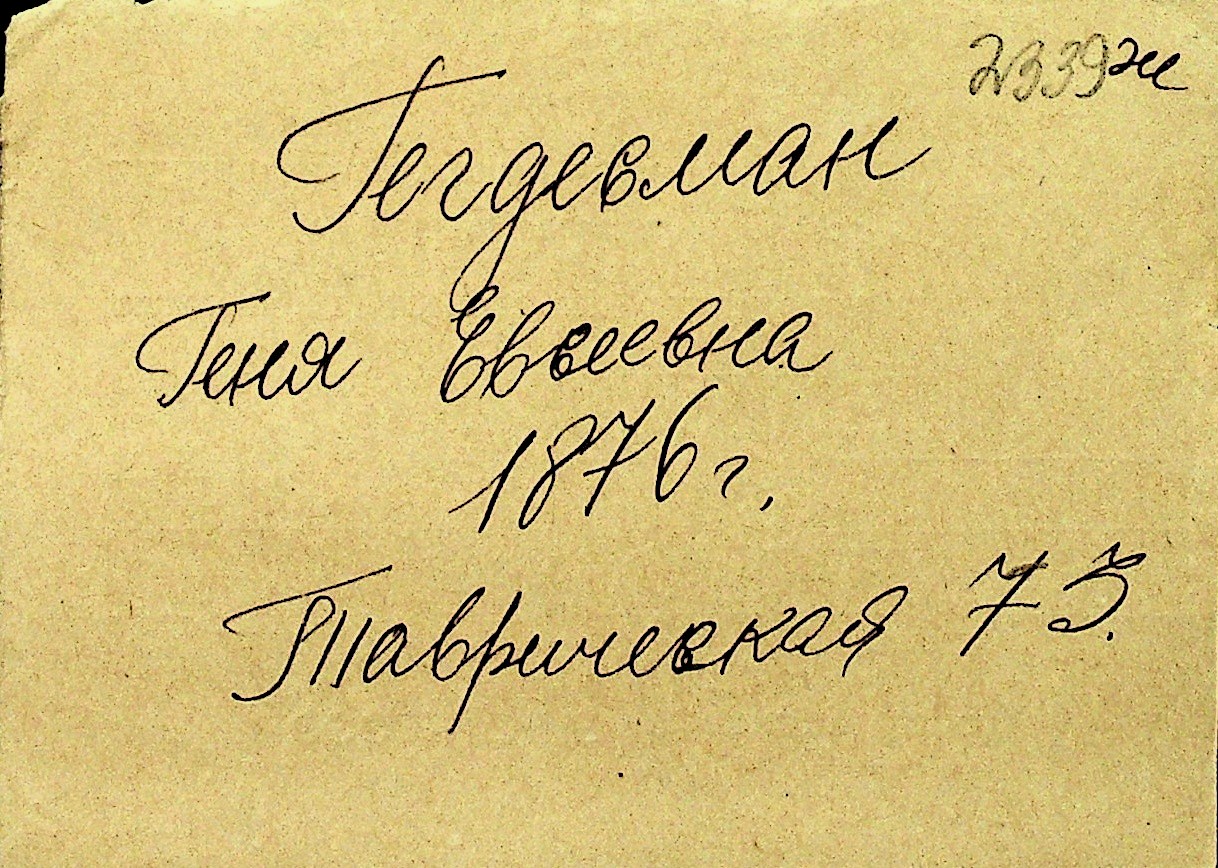 2339ж
Гегдесман
Геня Евсеевна
1876 г.
Таврическая 73.